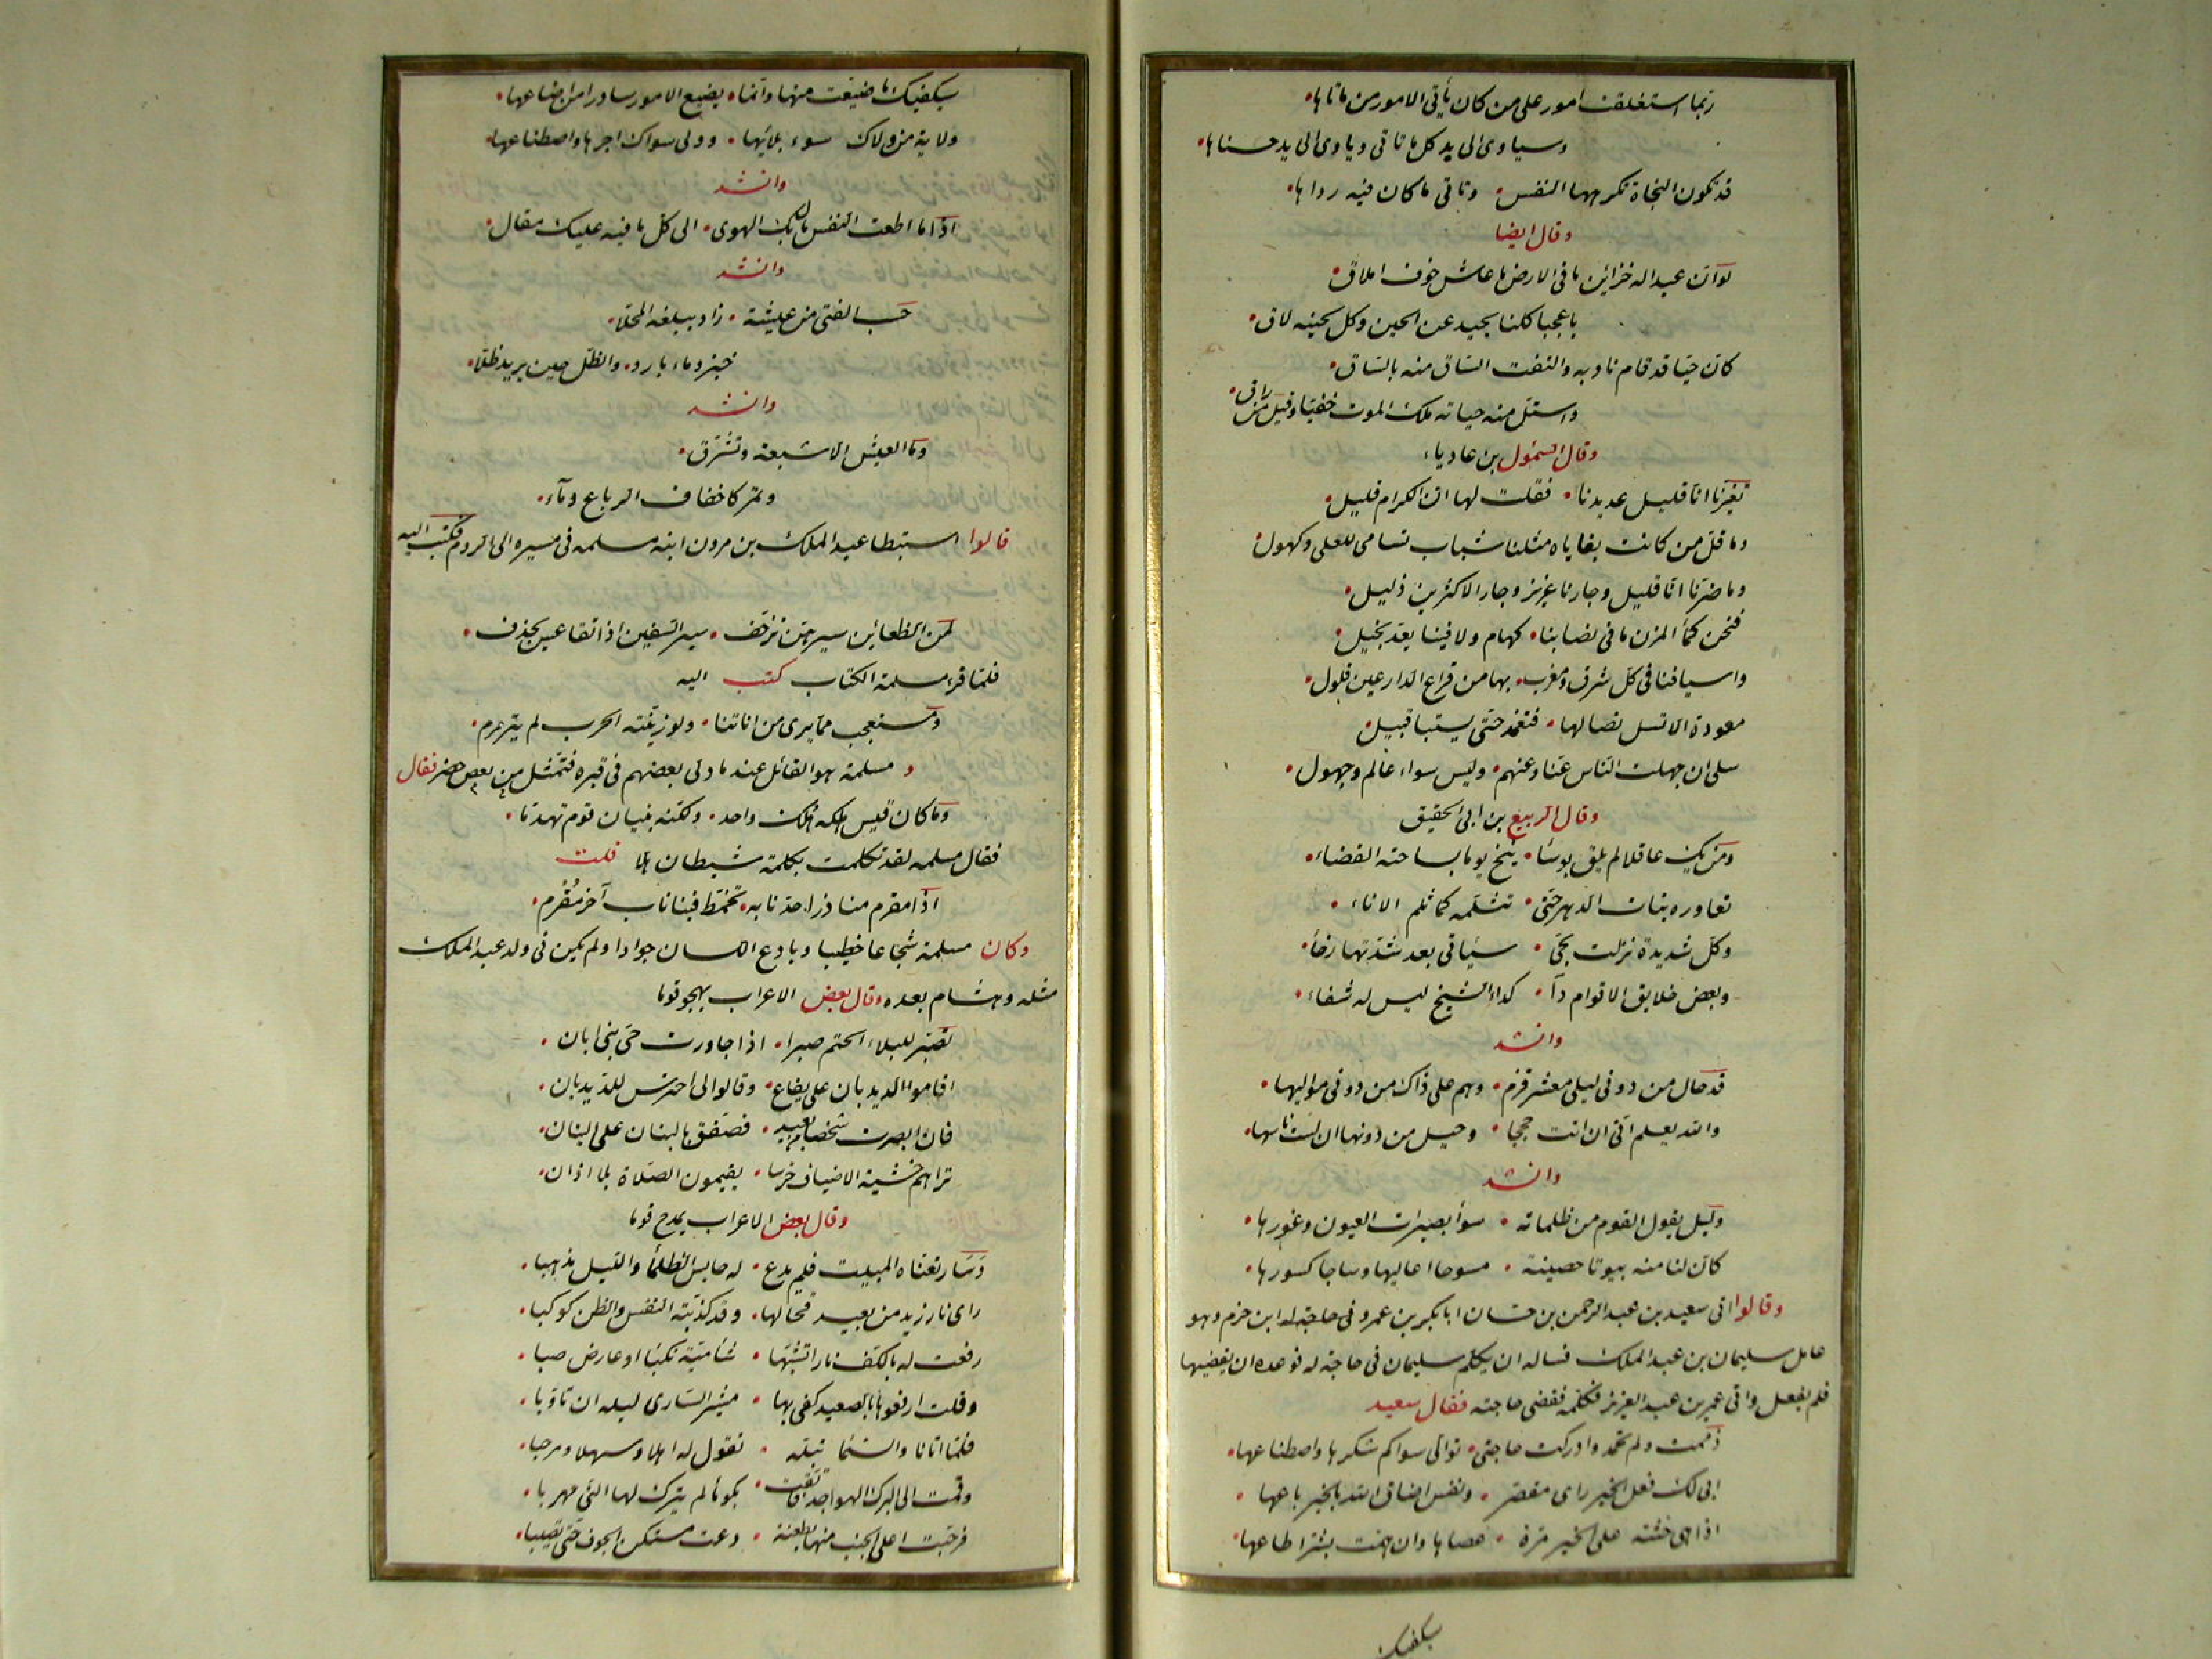 ربما استغلقت امور على من كان يأتى الامور من ماتاها
وسياوى الى يد كل ما تاتى وياوى الى يد حسناها
قد تكون النجاة تكرهها النفس وتاتى ما كان فيه رداها
وقال ايضا
لو ان عبد اله خزاين ما فى الارض ما عاش خوف املاق
يا عجبا كلنا يحيد عن الحين وكل لحينه لاق
كان حيا قد قام نادبه والتفت الساق منه بالساق
واستل منه حياته ملك الموت خفيا وقيل من راق
وقال السمول بن عادياء
تعيرنا انا قليل عديدنا فقلت لها ان الكرام قليل
وما قل من كانت بقاياه مثلنا شباب تسامى للعلى وكهول
وما ضرنا انا قليل وجارنا عزيز وجار الاكثرين ذليل
فنحن كمأ المزن ما فى نصابنا كهام ولا فينا يعد بخيل
واسيافنا فى كل شرق ومغرب بها من قراع الدارعين فلول
معودة الا تسل نصالها فتغمد حتى يستبا قبيل
سلى ان جهلت الناس عنا وعنهم وليس سواء عالم وجهول
وقال الربيع بن ابى الحقيق
ومن يك عاقلا لم يلق بوسا ينخ يوما بساحته القضاء
تعاوره بنات الدهر حتى تثلمه كما ثلم الاناء
وكل شديدة نزلت بحى سياتى بعد شدتها رخأ
وبعض خلايق الاقوام دآ كداء الشيخ ليس له شفاء
وانشد
قد حال من دونى ليلى معشر قزم وهم على ذاك من دونى مواليها
والله يعلم انى ان انت حججا وحيل من دونها ان لست ناسها
وانشد
وليل يقول القوم من ظلماته سوأ بصيرات العيون وعورها
كان لنا منه بيوتا حصينة مسوحا اعاليها وساجا كسورها
وقالوا اتى سعيد بن عبد الرحمن بن حسان ابا بكر بن عمرو فى حاجة له ابن حزم وهو
عامل سليمان بن عبد الملك فساله ان يكلم سليمان فى حاجة له فوعده ان يقضيها
فلم يفعل واتى عمر بن عبد العزيز فكلمه فقضى حاجته فقال سعيد
ذممت ولم تحمد وادركت حاجتى تولى سواكم شكرها واصطناعها
ابى لك فعل الخير راى مقصر ونفس اضاق الله بالخير باعها
اذا هى حثته على الخير مرة عصاها وان همت بشر اطاعها
سيكفيك
سيكفيك ما ضيعت منها وانما يضيع الامور سادرا من اضاعها
ولاية من ولاك سوء بلائها وولى سواك اجرها واصطناعها
وانشد
اذا ما اطعت النفس مال بك الهوى الى كل ما فيه عليك مقال
وانشد
حسب الفتى من عيشة زاد يبلغه المحلا
خبز وماء بارد والظل حين يريد ظلا
وانشد
وما العيش الا شبعة وتشرق
وتمر كاخفاف الرباع ومآء
قالوا استبطا عبد الملك بن مرون ابنه مسلمه فى مسيره الى الروم فكتب اليه
لمن الظعاين سيرهن تزحف سير السفين اذا تقاعس يجذف
فلما قرء مسلمة الكتاب كتب اليه
ومستعجب مما يرى من اناتنا ولو زبنته الحرب لم يترمرم
و مسلمة هو القائل عند ما دلى بعضهم فى قبره فتمثل بعض من حضر فقال
وما كان قيس هلكه هلك واحد ولكنه بنيان قوم تهدما
فقال مسلمه لقد تكلمت بكلمة شيطان هلا قلت
اذا مقرم منا ذرا حد نابه تخمط فينا ناب آخر مقرم
وكان مسلمة شجاعا خطيبا وبارع اللسان جوادا ولم يكن فى ولد عبد الملك
مثله وهشام بعده وقال بعض الاعراب يهجو قوما
تصبر للبلاء الحتم صبرا اذا جاورت حى بنى ابان
اقاموا الديدبان على يفاع وقالوا لى احترس للديدبان
فان ابصرت شخصا من بعيد فصفق بالبنان على البنان
تراهم خشية الاضياف خرسا يقيمون الصلاة بلا اذان
وقال بعض الاعراب يمدح قوما
وسار تعناه المبيت فلم يدع له حابس الظلمأ والليل مذهبا
راى نار زيد من بعيد فخالها وقد كذبته النفس والظن كوكبا
رفعت له بالكف نارا تشبها شأمية نكبا او عارض صبا
وقلت ارفعوها بالصعيد كفى بها مشير السارى ليله ان تاوبا
فلما اتانا والسما تبله نقول له اهلا وسهلا ومرحبا
وقمت الى البرك الهواجد فاتقت بكوما لم يترك لها النى مهربا
فرحبت اعلى الجنب منها بطعنة دعت مستكن الجوف حتى تصببا